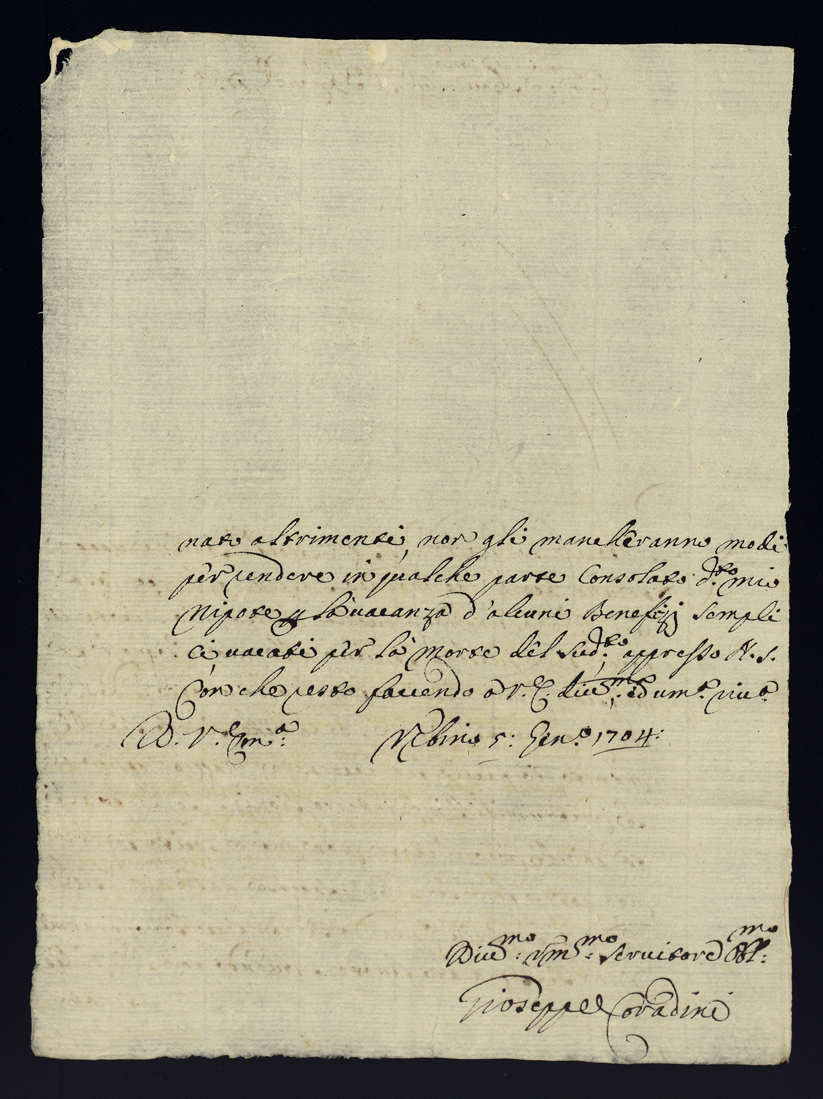 nato altrimenti, non gli mancheranno modi
per rendere in qualche parte Consolato d.to mio
Nipote p la vacanza d'alcuni Benefizj sempli
ci vacati per la morte del sud.to appresso N. S.
Con che resto facendo a V. E. div.ma ed um.a riv.a
D. V. Em.a Urbino 5: Gen.o 1704:
Div.mo Um.mo Servitore Obl.mo
Gioseppe Coradini